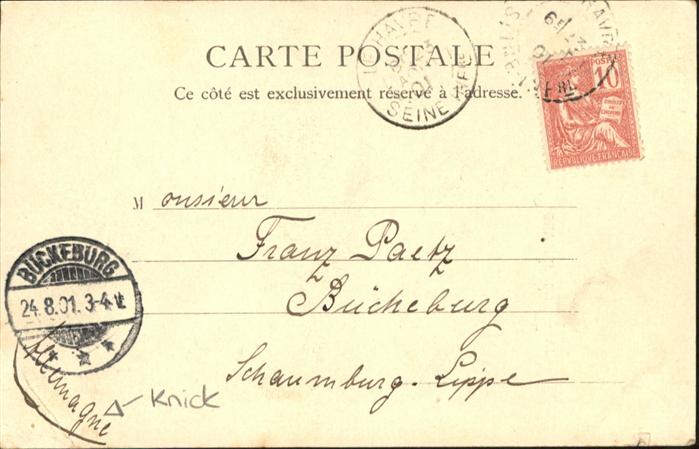 CARTE POSTALE
Ce côté est exclusivement réservé à l'adresse.
LE HAVRE
01
SEINE INFRE
POSTES
10
DROITS DE L'HOMME
REPUBLIQUE FRANÇAISE
Monsieur
Franz Paetz
Bückeburg
Schaumburg-Lippe
BÜCKEBURG
24.8.01.3-4N
Allemagne
Knick